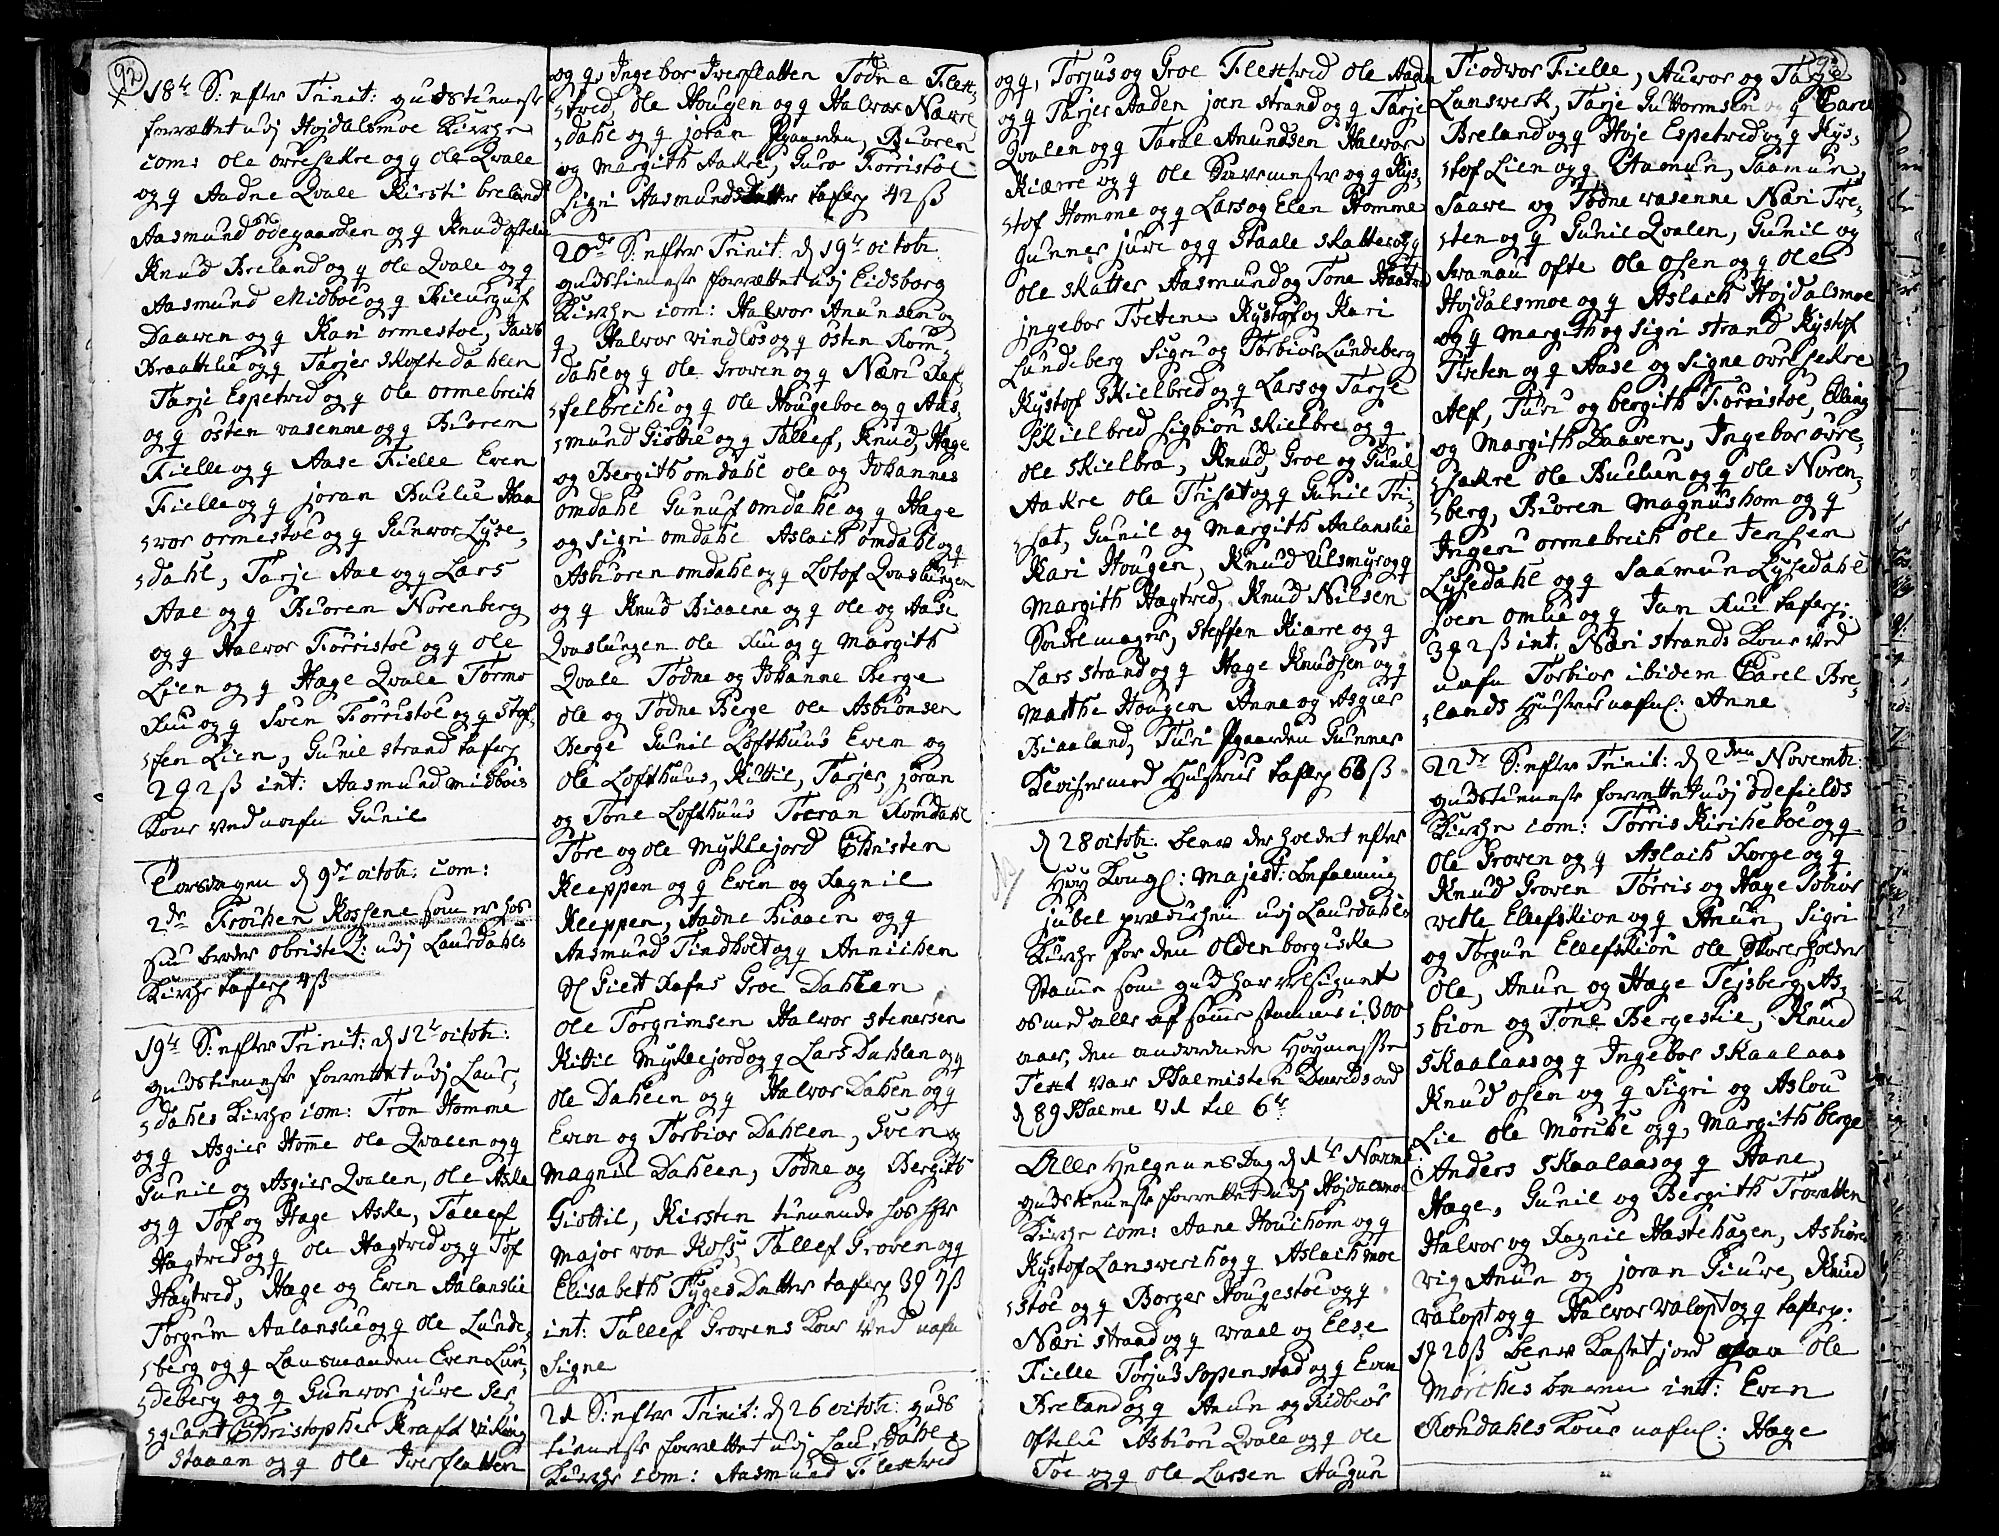 92
18de S: efter Trinit: gudstienest
forrettet udj Hojdalsmoe Kirche
com: Ole øvresækre og q Ole Qvale
og q Aadne Qvale Kirsti breland
Aasmund ödegaarden og q Knud oftelie
Knud Breland og q Ole Qvale og q
Aasmund Midboe og q
Daaven og q Kari ormestoe, Jacob
Braattlie og q Tarjer Skoftedahlen
Tarje Espetved og q Ole ormebrech
og q østen vasenne og q Biorem
Fielle og q Aase Fielle Even
Fielle og q joran Buelie Haa
svor ormestoe og q Gunvor Lyse,
sdahl, Tarje Aae og q Lars
Aae og q Biorem Norenberg
og q Halvor Förristoe og q Ole
Lien og q Hæge Qvale Tormo
Rui og q Sven Forristoe og q Stef,
sfen Lien, Gunil strand taferp
2q 2ß int: Aasmund midbøes
Kone ved nafn Gunil
Torsdagen d 9de octob: com:
2de Frøchen Rossene som er hos
sin broder obriste L: udj Laurdahls
Kirche taferp 4ß
19de S: efter Trinit: d 12te octob:
gudstienest forrettet udj Laur,
sdahls Kirche com: Tron Homme
og q Asgier Home Ole Qvalen og q
Gunil og Asgier Qvalen, Ole Aske
og q Tof og Hæge Aske, Tallef
Hagtved og q Ole Hagtved og q Tof
Hagtved, Hæge og Even Aalanslie
Torgrim Aalanslie og q Ole Lunde,
sberg og q Lansmanden Even Lun,
sdeberg og q Gunvor juve Ser,
sgiant Christopher Kraft viking
Staaan og q Ole Iverflatten
og q, Ingebor Iverflatten Todne Flek
stved, Ole Hougen og q Halvor Nævre
sdahl og q joran Pgaarden, Bioren
og Margith Aakre, Guro Forristoe
Sigri Aasmundsdatter taferp 42ß
20de S: efter Trinit: d 19de octob:
gudstienest forrettet udj Eidsborg
Kirche com: Halvor Anunsen og
q, Halvor vindlös og q østen Rom,
dahl og q Ole Groven og q Næri Raf,
sfelbreche og q Ole Hougeboe og q Aas,
smund Giøttie og q Tallef, Knud, Hæge
og Bergith omdahl Ole og Johannes
omdahl Gunuf omdahl og q Hæge
og Sigri omdahl Aslach omdahl og q
Asbioren omdahl og q Lotof Qvaslungen
og q Knud Biaaene og q Ole og Aase
Qvaslungen Ole Rui og q Margith
Qvale Todne og Johanne Berge
Ole og Todne Berge Ole Asbionsen
Berge Gunil Lofthuus Even og
Ole Lofthuus, Kittil, Tarjer, joran
og Tone Lofthuus Toeran Romdahl
Tore og Ole Myklejord Christen
Kleppen og q Even og Ragnil
Kleppen, Aadne Biaaen og q
Aasmund Tindholt og q Annichen
Giett Rafns Groe Dahlen
Ole Torgrimsen Halvor Stenersen
Kittil Myklejord og q Lars Dahlen og q
Ole Dahlen og q Halvor Dahlen og q
Even og Torbior Dahlen, Sven og
Magnil Dahlen, Todne og Bergith
Giottil, Kirsten tienende hos Hr
Major von Ross, Tallef Groven og q
Elisabeth TygesDatter taferp 3q 7ß
int: Tallef Grovens Kone ved nafn
Signe
21 S: efter Trinit: d 26 octob: guds
tienest forrettet udj Laurdahls
Kirche com: Aasmund Flektved
og q, Torjus og Groe Flektved Ole Aaden
og q Tarjer Aaden joen strand og q Tarje
Qvalen og q Tarol Anundsen Halvor
Kiærre og q Ole og q Kys,
stof Homme og q Lars og Elen Homme
Gunner juve og q Staale skatter og q
Ole skatter Aasmund og Tone Haatvet
jngebor Tvetene Kystof og Kari
Lundeberg Sigri og Torbior Lundeberg
Kystof Skielbred og q Lars og Tarje
Skielbred Sigbion skielbre og q
Ole skielbra, Knud, Groe og Gunil
Aakre Ole Trisæt og q Gunil Tri,
sæt, Gunil og Margith Aalanslie
Kari Hougen, Knud Ulsmyr og q
Margith Hagtved, Knud Nilsen
Steffen Kiærre og q
Lars strand og q Hæge Knudsen og q
Marthe Hougen Anne og Asgier
Biaaland, Turi Pgaarden Gunner
med Hustrue taferp 68ß
d 28 octob: blev der holdet efter
Høy Kongl: Majest: befalning
jubel prædichen udj Laurdahls
Kirche for den Oldenborgiske
Stamme som gud har velsignet
os med alle af samme stammes i 300
aar, den anordnede Høymesse
Text var Psalmisten Davids ord
d 89 Psalme v 1 til 6te
Alle Helgenes Dag d 1te Novemb:
gudstienest forrettet udj Hojdalsmoe
Kirche com: Aane Houchom og q
Kystof Lansverch og q Aslach moe
stoe og q Borger Hougestoe og q
Næri strand og q wraal og Else
Fielle Torjus Sopenstad og q Even
Breland og q Anun og Ridbior
Oftelie Asbiörn Qvale og q Ole
Toe og q Ole Larsen Augun
Tiodvor Fielle, Auvor og Tarje
Lansverk, Tarje Guttormsen og q Carel
Breland og q Hoje Espetved og q Kys,
stof Lien og q Aamun, Saamun
Saave og Todne vasenne Næri Tve,
sten og q Gunil Qvalen, Gunil og
Svanau Ofte Ole Osen og q Ole
Hojdalsmoe og q Aslach Hojdalsmoe
og q Margith og Sigri strand Kystof
Tveten og q Aase og Signe øvresækre
Alf, Turi og bergith Förristoe, Elling
og Margith Daaven, Ingebor øvre,
sækre Ole Buelien og q Ole Noren,
sberg, Bioren Magnushom og q
Ingeri ormebrech Ole Jensen
Lysedahl og q Saamun Lysedahl
Joen omlie og q Jan Rui taferp:
3q 2ß int: Næri strands Kone ved
nafn Torbior ibidem Carel Bre,
slands Hustrue nafnl: Anne
22de S: efter Trinit: d 2den Novemb:
gudstienest forrettet udj ödefields
Kirche com: Törris Kircheboe og q
Ole Groven og q Aslach Korge og q
Knud Groven Törris og Hæge Tobior
vetle Ellefskion og q Anun, Sigri
og Torgun Ellefskion Ole Skoreholder
Ole, Anun og Hæge Tejsberg As,
sbion og Tone Bergestie, Knud
Skaalaas og q Ingebor skaalaas
Knud Osen og q Sigri og Aslou
Lie Ole Mørche og q, Margith berge
Anders Skaalaas og q Aane,
Hæge, Gunil og Bergith Trovatten
Halvor og Ragnil Hastehagen, Asbiören
vig Anun og joran Giuve, Knud
valopt og q Halvor valopt og q taferp:
1q 20ß blev Kastet jord paa Ole
Mørches barn int: Even
Rondahls Kone nafnl: Hæge